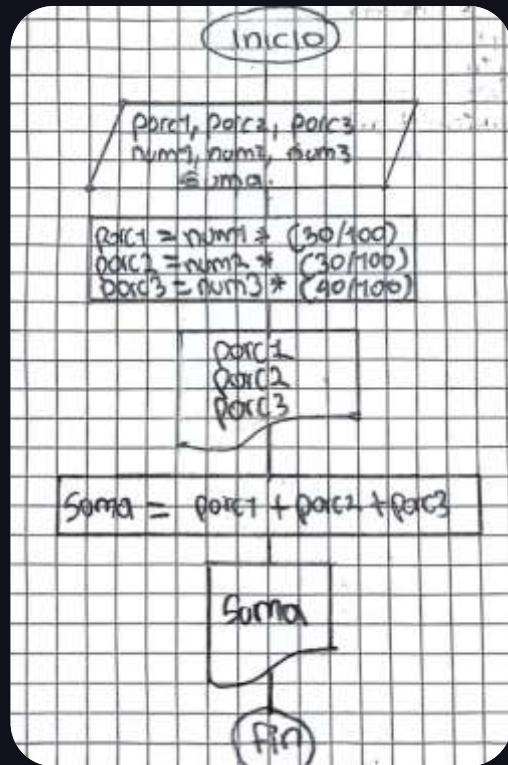 Inicio
porc1, porc2, porc3
num1, num2, num3
suma.
porc1 = num1 * (30/100)
porc2 = num2 * (30/100)
porc3 = num3 * (40/100)
porc1
porc2
porc3
Suma = porc1 + porc2 + porc3
Suma
Fin